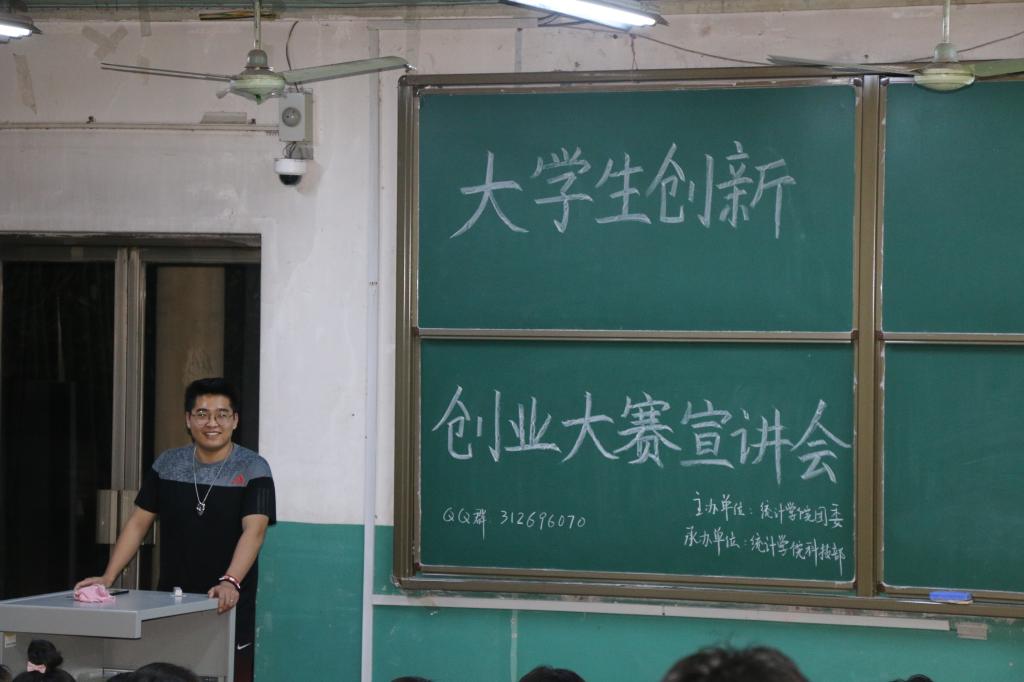 大学生创新
创业大赛宣讲会
QQ群 312696070
主办单位：统计学院团委
承办单位：统计学院科技部